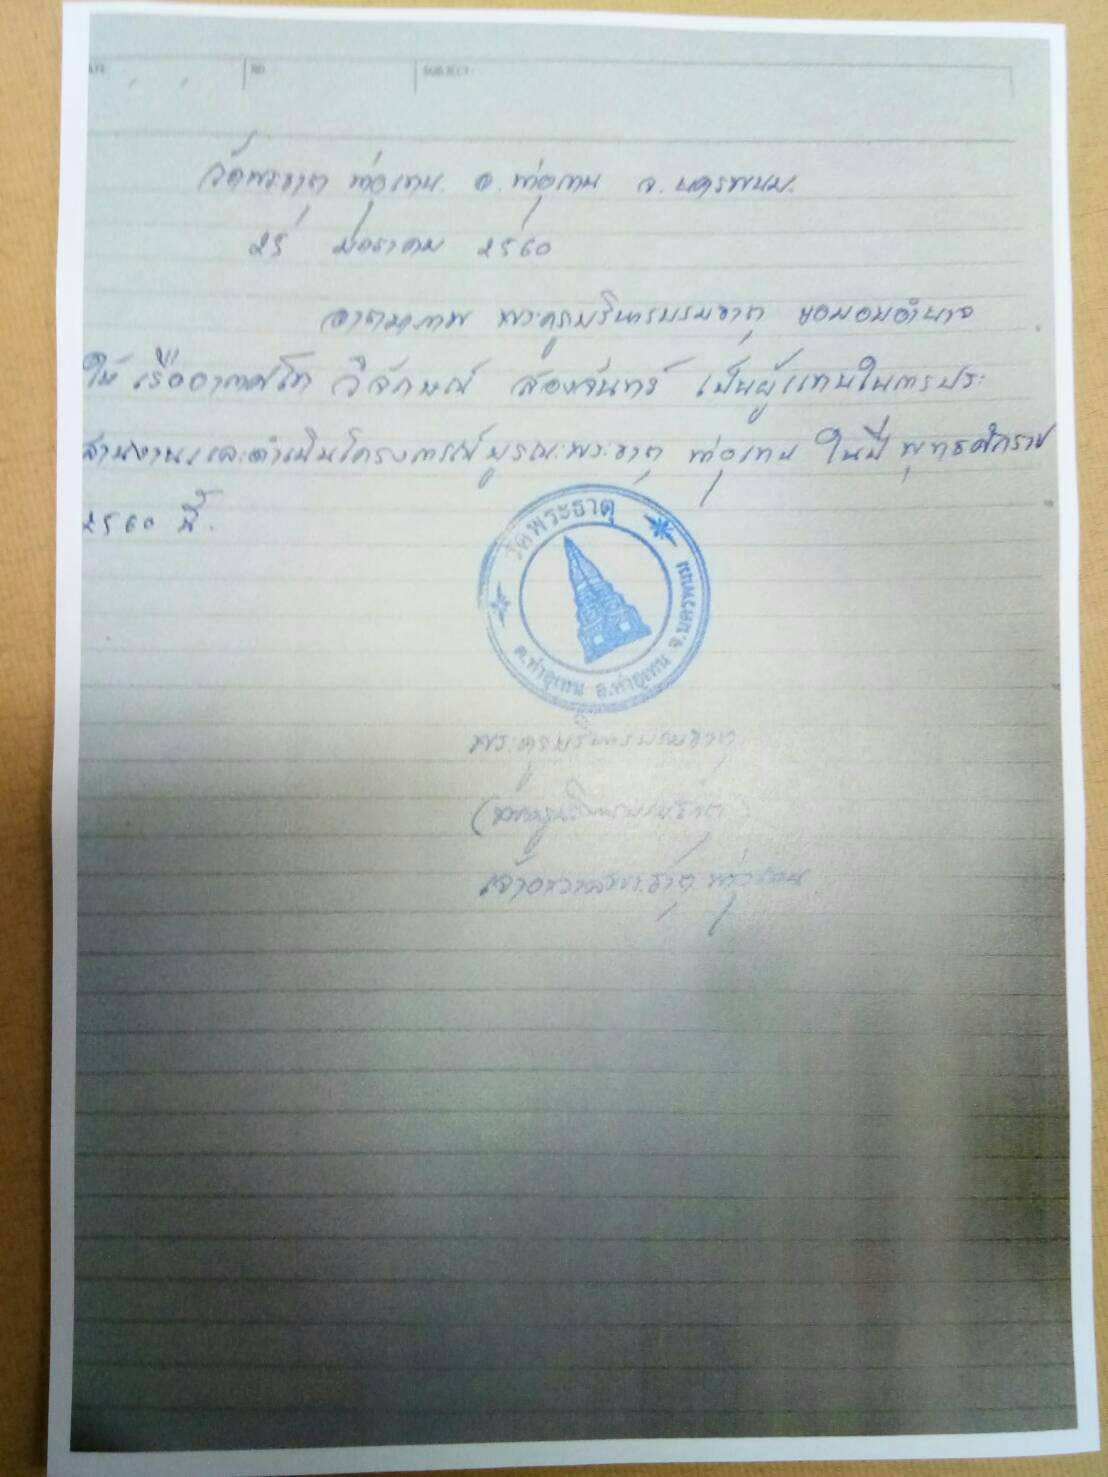 ATE NO SUBJECT
วัดพระธาตุ ท่าอุเทน. อ. ท่าอุเทน จ. นครพนม.
25 มกราคม 2560
อาตมาภาพ พระครูบริหารบรมธาตุ ขอมอบอำนาจ
ให้ เรืออากาศโท วิจักษณ์ สองจันทร์ เป็นผู้แทนในการประ
สานงานและดำเนินโครงการบูรณะพระธาตุ ท่าอุเทน ในปี พุทธศักราช
2560 นี้.
วัดพระธาตุ
ต.ท่าอุเทน อ.ท่าอุเทน จ.นครพนม
พระครูบริหารบรมธาตุ
(พระครูบริหารบรมธาตุ)
เจ้าอาวาสพระธาตุ ท่าอุเทน